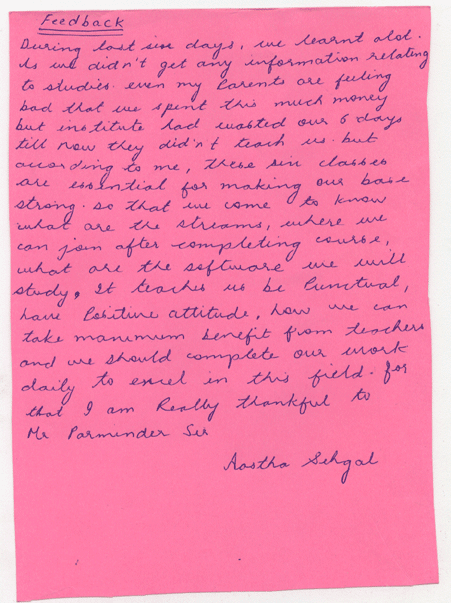 Feedback
During last six days, we learnt alot.
As we didn't get any information relating
to studies. even my Parents are feeling
bad that we spent this much money
but institute had wasted our 6 days
till now they didn't teach us. but
according to me, these six classes
are essential for making our base
strong. so that we come to know
what are the streams, where we
can join after completing course,
what are the software we will
study, It teaches us be Punctual,
have Positive attitude, how we can
take maximum benefit from teachers
and we should complete our work
daily to excel in this field. for
that I am Really thankful to
Mr Parminder Sir
Aastha Sehgal